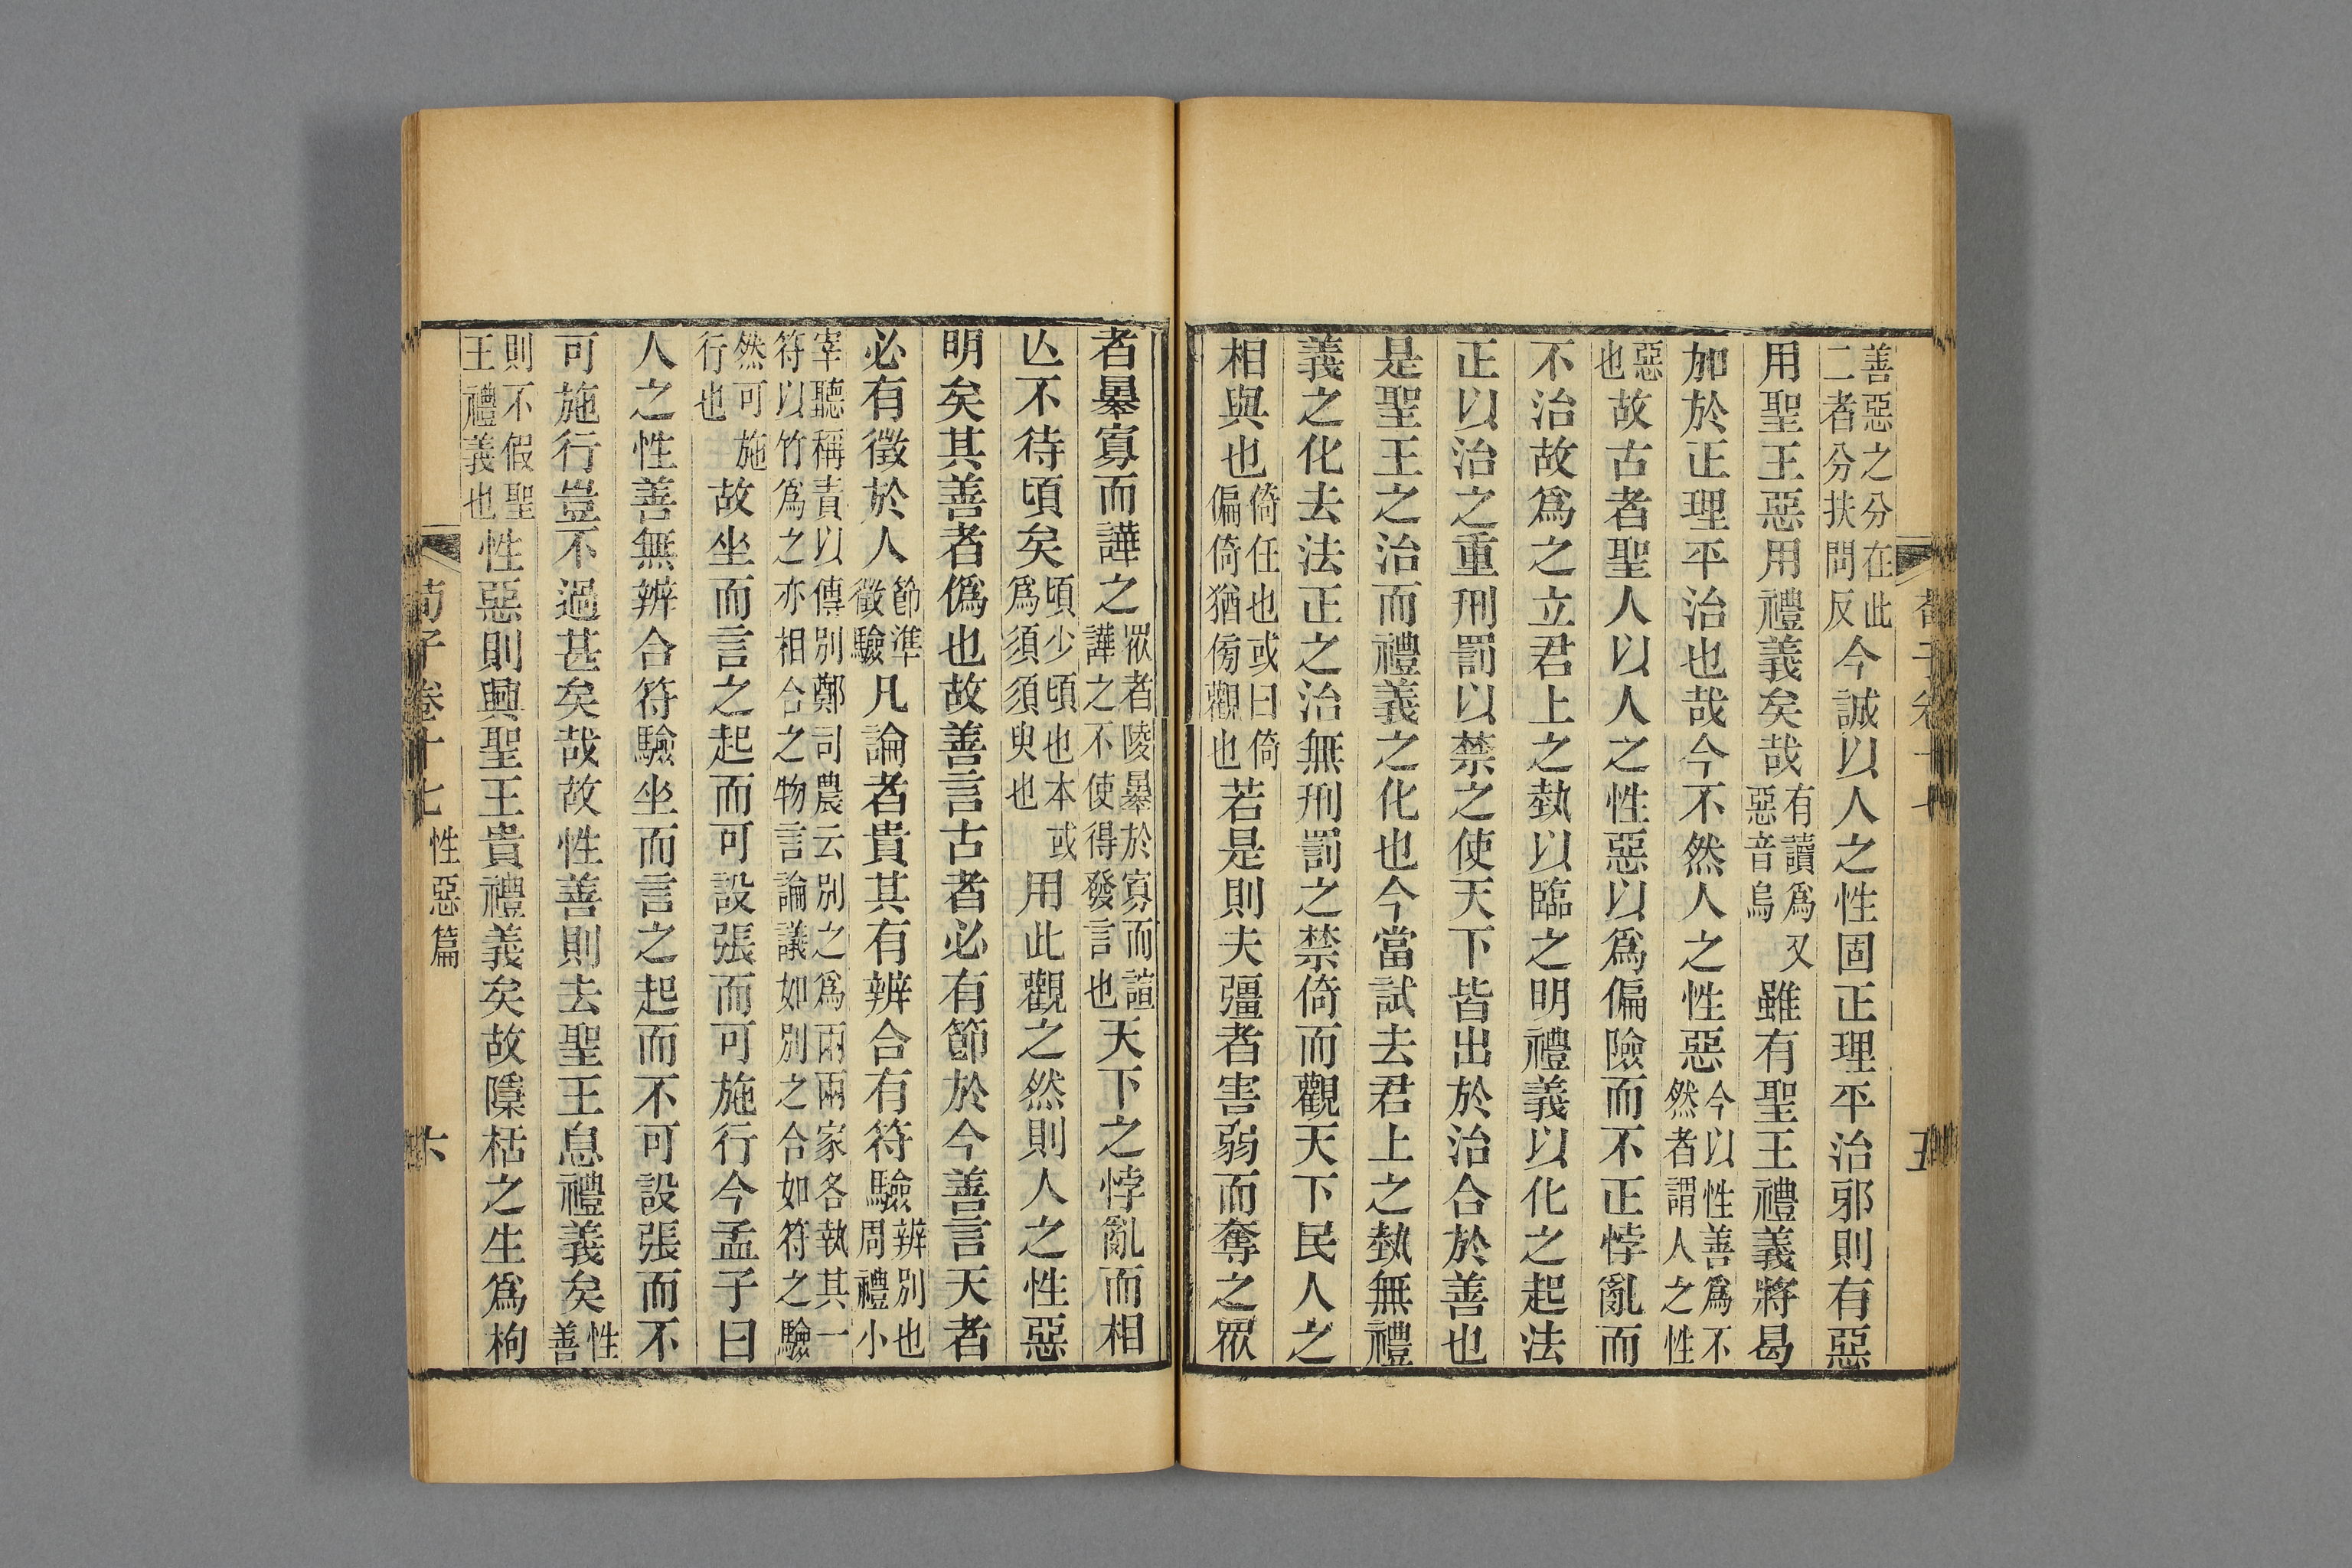 善惡之分在此二者分扶問反今誠以人之性固正理平治邪則有惡
用聖王惡用禮義矣哉有讀爲又惡音烏雖有聖王禮義將曷
加於正理平治也哉今不然人之性惡今以性善爲不然者謂人之性
惡也故古者聖人以人之性惡以爲偏險而不正悖亂而
不治故爲之立君上之埶以臨之明禮義以化之起法
正以治之重刑罰以禁之使天下皆出於治合於善也
是聖王之治而禮義之化也今當試去君上之埶無禮
義之化去法正之治無刑罰之禁倚而觀天下民人之
相與也倚任也或曰倚偏倚猶傍觀也若是則夫彊者害弱而奪之眾
者暴寡而譁之眾者陵暴於寡而諠譁之不使得發言也天下之悖亂而相
亾不待頃矣頃少頃也本或爲須須臾也用此觀之然則人之性惡
明矣其善者僞也故善言古者必有節於今善言天者
必有徵於人節準徵驗凡論者貴其有辨合有符驗辨別也周禮小
宰聽稱責以傅別鄭司農云別之爲兩兩家各執其一符以竹爲之亦相合之物言論議如別之合如符之驗
然可施行也故坐而言之起而可設張而可施行今孟子曰
人之性善無辨合符驗坐而言之起而不可設張而不
可施行豈不過甚矣哉故性善則去聖王息禮義矣性善
則不假聖王禮義也性惡則興聖王貴禮義矣故檃栝之生爲枸
荀子卷十七
性惡篇
六